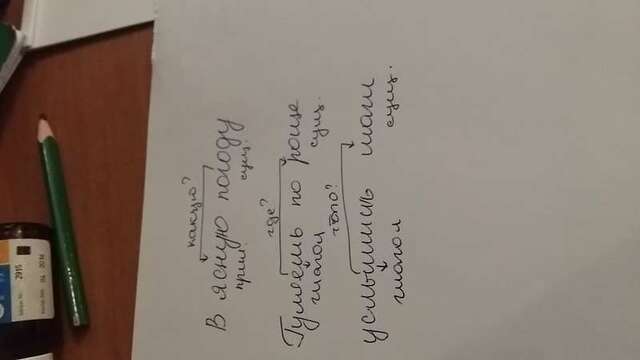 2915
какую?
В ясную погоду
прил. сущ.
где?
Гуляешь по роще
глагол сущ.
что?
услышишь шаги
глагол сущ.